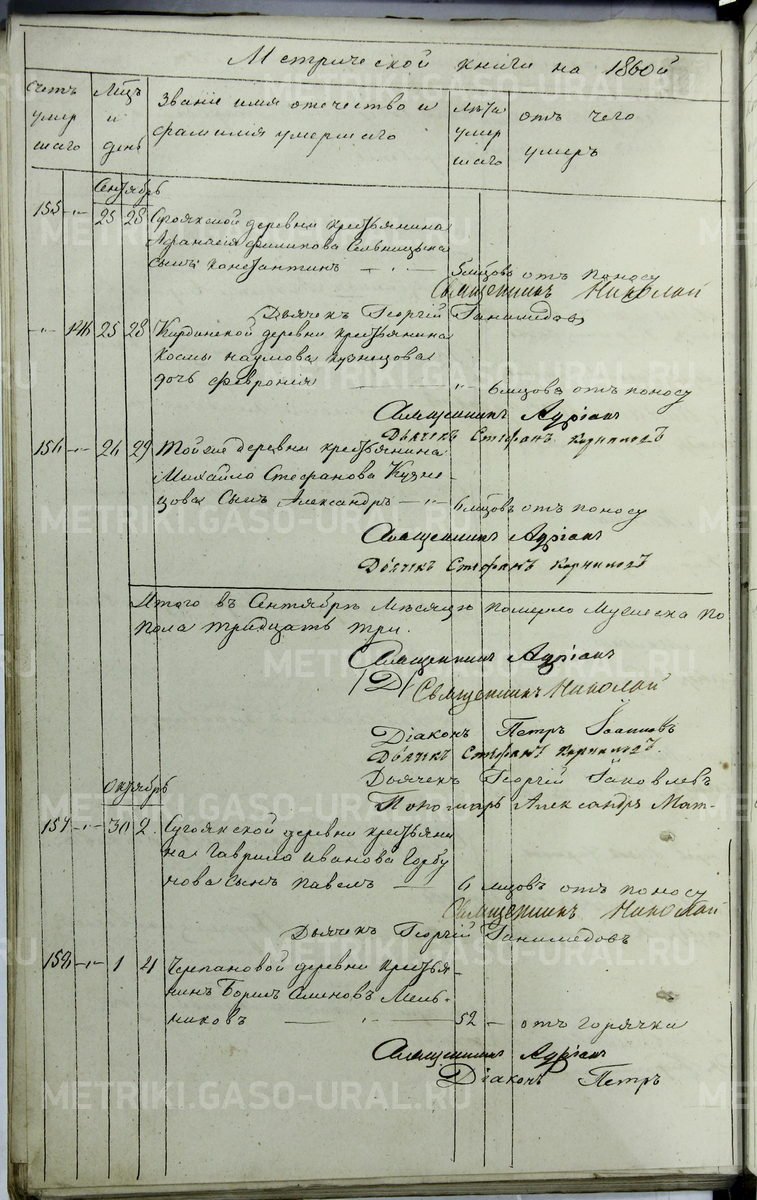 Метрической книги на 1860й
Счетъ умершаго
Мцъ и день
Званіе имя отечество и фамилія умершаго
Лѣта умершаго
отъ чего умеръ
Сентябрь
155 25 28 Сугоякской деревни крестьянина
Филипова
сынъ Константинъ 5 мцовъ отъ поноса
Священникъ Николай
Дьячекъ Георгій Ганимедовъ
146 25 28 деревни крестьянина
Космы Наумова Кузнецова
дочь Февронія 6 мцовъ отъ поносу
Священникъ Адріанъ
Дьячекъ Стефанъ
156 26 29 Той же деревни крестьянина
Михайла Стефанова Кузне-
цова Сынъ Александръ 6 мцовъ отъ поносу
Священникъ Адріанъ
Дьячекъ Стефанъ
Итого въ Сентябрѣ мѣсяцѣ померло Мужеска по
пола тридцать три.
Священникъ Адріанъ
Священникъ Николай
Діаконъ Петръ
Дьячекъ Стефанъ
Дьячекъ Георгій Яковлевъ
Пономарь Александръ Мат-
Октябрь
157 30 2 Сугоякской деревни крестьяни
на Гаврила Иванова Горбу
нова сынъ Павелъ 6 мцовъ отъ поносу
Священникъ Николай
Дьячекъ Георгій Ганимедовъ
158 1 4 Черпановой деревни крестья-
нинъ Борисъ Мель-
никовъ 52 отъ горячки
Священникъ Адріанъ
Діаконъ Петръ
METRIKI.GASO-URAL.RU